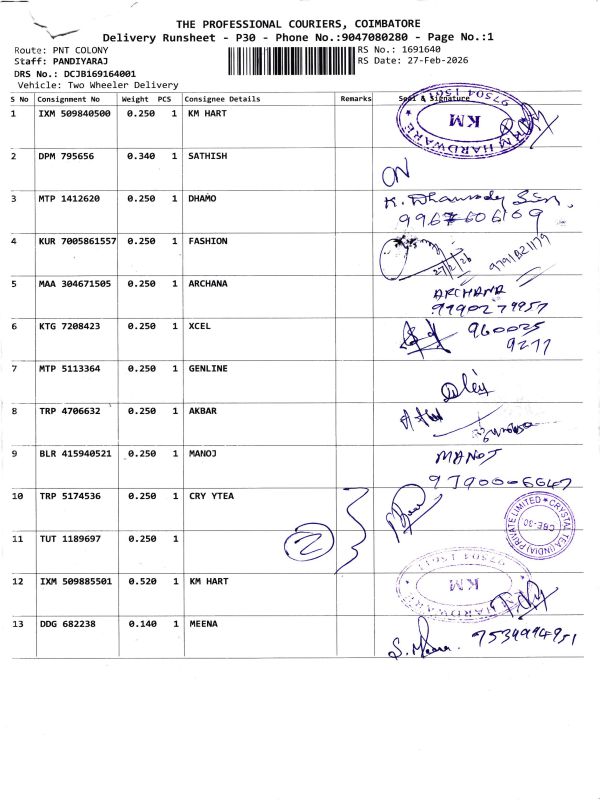 THE PROFESSIONAL COURIERS, COIMBATORE
Delivery Runsheet - P30 - Phone No.:9047080280 - Page No.:1
Route: PNT COLONY
Staff: PANDIYARAJ
DRS No.: DCJB169164001
Vehicle: Two Wheeler Delivery
RS No.: 1691640
RS Date: 27-Feb-2026
S No Consignment No Weight PCS Consignee Details Remarks Seal & Signature
1 IXM 509840500 0.250 1 KM HART
KM
HARDWARE
97504
2 DPM 795656 0.340 1 SATHISH
ON
3 MTP 1412620 0.250 1 DHAMO
K.
4 KUR 7005861557 0.250 1 FASHION
27/2/26
5 MAA 304671505 0.250 1 ARCHANA
ARCHANA
9790279957
6 KTG 7208423 0.250 1 XCEL
960025
9277
7 MTP 5113364 0.250 1 GENLINE
8 TRP 4706632 0.250 1 AKBAR
9 BLR 415940521 0.250 1 MANOJ
MANOJ
10 TRP 5174536 0.250 1 CRY YTEA
CRYSTAL TEA (INDIA) PRIVATE LIMITED
CBE-30
11 TUT 1189697 0.250 1
2
12 IXM 509885501 0.520 1 KM HART
KM
HARDWARE
13 DDG 682238 0.140 1 MEENA
S. Meena
7539994951